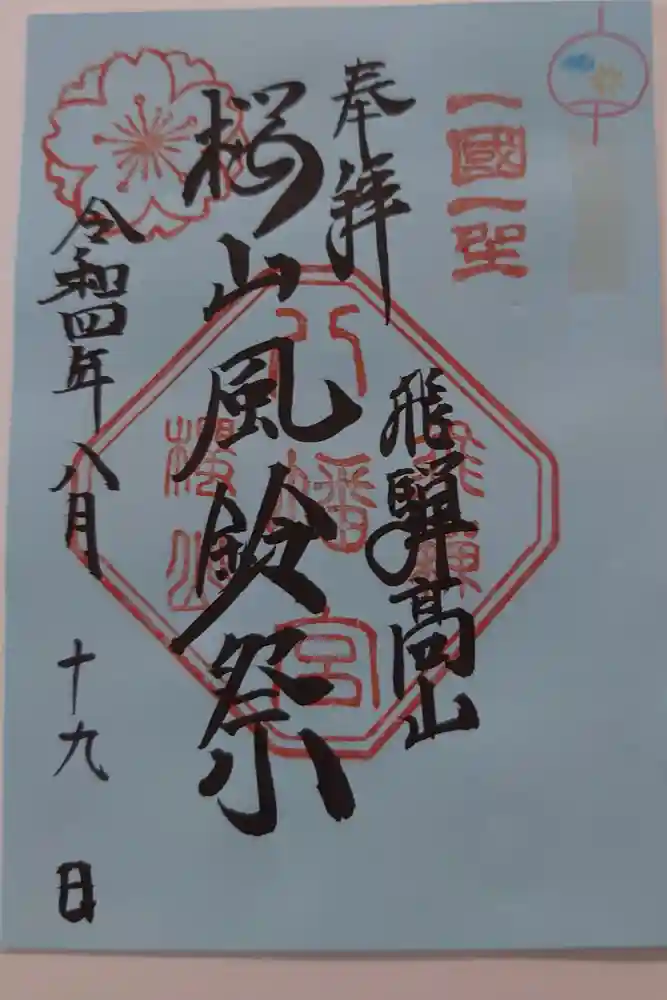 一國一社
奉拝
飛騨高山
桜山風鈴祭
令和四年八月十九日
飛騨
八幡宮
櫻山